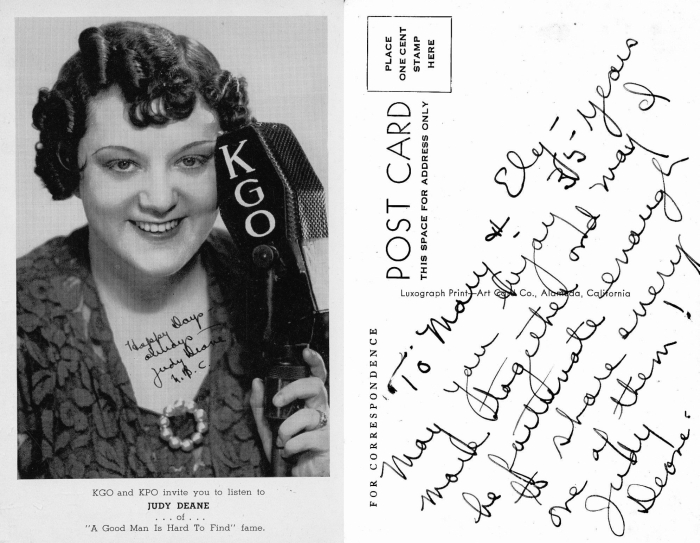 KGO
Happy Days
always —
Judy Deane
N.B.C.
KGO and KPO invite you to listen to
JUDY DEANE
. . . of . . .
"A Good Man Is Hard To Find" fame.
PLACE
ONE CENT
STAMP
HERE
POST CARD
THIS SPACE FOR ADDRESS ONLY
Luxograph Print—Art Card Co., Alameda, California
FOR CORRESPONDENCE
To Mary & Ely —
May you enjoy 35 years
more together and may I
be fortunate enough
to share every
one of them!
Judy
Deane -